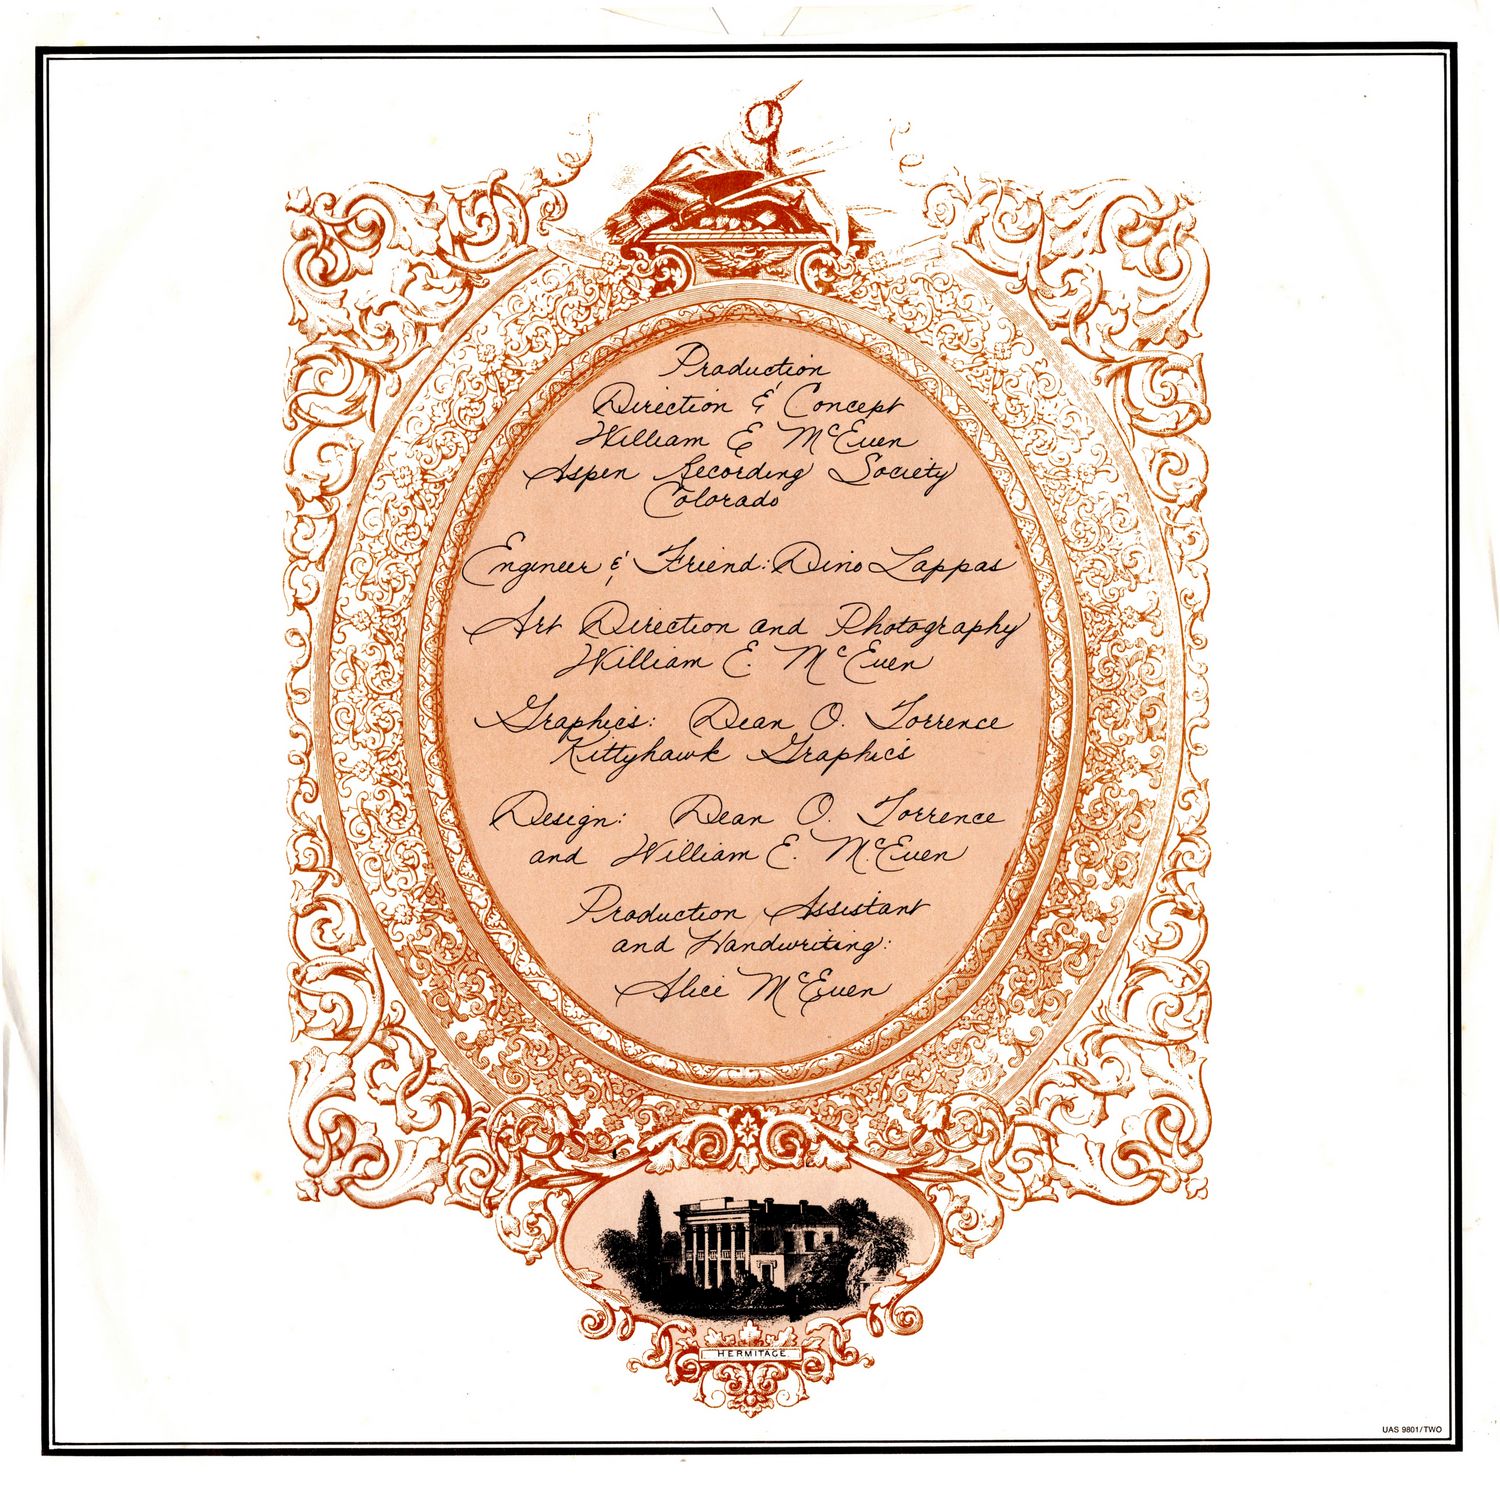 Production
Direction & Concept
William E McEuen
Aspen Recording Society
Colorado
Engineer & Friend: Dino Lappas
Art Direction and Photography
William E. McEuen
Graphics: Dean O. Torrence
Kittyhawk Graphics
Design: Dean O. Torrence
and William E. McEuen
Production Assistant
and Handwriting:
Alice McEuen
HERMITAGE.
UAS 9801/TWO